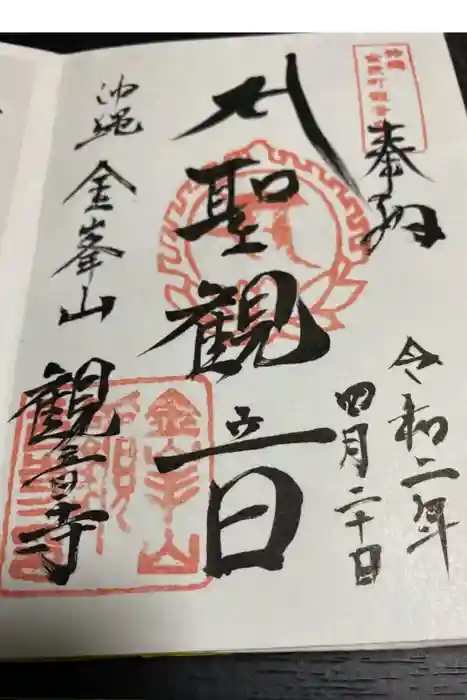 奉納
令和二年
四月二十日
聖観音
沖縄 金峯山
観音寺
金峯山